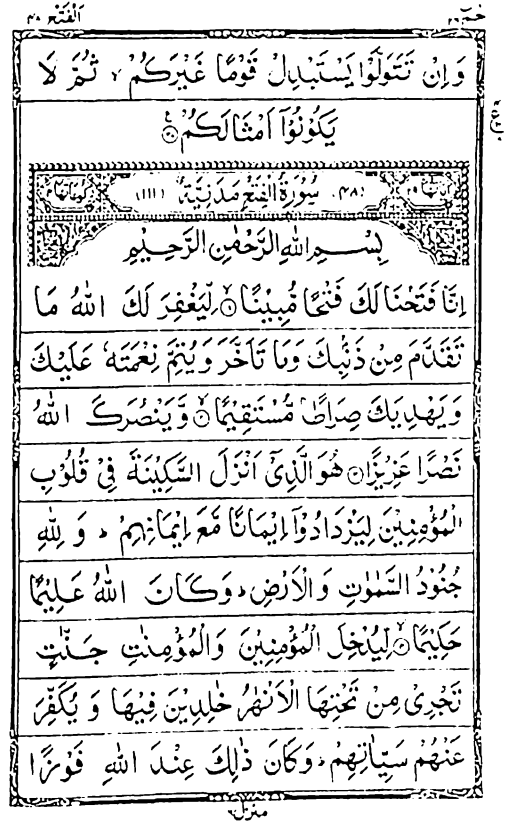 حٰمٓ ٢٦
اَلْفَتْح ٤٨
وَاِنْ تَتَوَلَّوْا يَسْتَبْدِلْ قَوْمًا غَيْرَكُمْ ۙ ثُمَّ لَا
يَكُوْنُوْٓا اَمْثَالَكُمْ ۝٣٨
اٰيَاتُهَا ٢٩ (٤٨) سُوْرَةُ الْفَتْحِ مَدَنِيَّةٌ (١١١) رُكُوْعَاتُهَا ٤
بِسْمِ اللّٰهِ الرَّحْمٰنِ الرَّحِيْمِ
اِنَّا فَتَحْنَا لَكَ فَتْحًا مُّبِيْنًا ۝١ۙ لِّيَغْفِرَ لَكَ اللّٰهُ مَا
تَقَدَّمَ مِنْ ذَنْۢبِكَ وَمَا تَاَخَّرَ وَيُتِمَّ نِعْمَتَهٗ عَلَيْكَ
وَيَهْدِيَكَ صِرَاطًا مُّسْتَقِيْمًا ۝٢ۙ وَّيَنْصُرَكَ اللّٰهُ
نَصْرًا عَزِيْزًا ۝٣ هُوَ الَّذِيْٓ اَنْزَلَ السَّكِيْنَةَ فِيْ قُلُوْبِ
الْمُؤْمِنِيْنَ لِيَزْدَادُوْٓا اِيْمَانًا مَّعَ اِيْمَانِهِمْ ؕ وَلِلّٰهِ
جُنُوْدُ السَّمٰوٰتِ وَالْاَرْضِ ؕ وَكَانَ اللّٰهُ عَلِيْمًا
حَكِيْمًا ۝٤ۙ لِّيُدْخِلَ الْمُؤْمِنِيْنَ وَالْمُؤْمِنٰتِ جَنّٰتٍ
تَجْرِيْ مِنْ تَحْتِهَا الْاَنْهٰرُ خٰلِدِيْنَ فِيْهَا وَيُكَفِّرَ
عَنْهُمْ سَيِّاٰتِهِمْ ؕ وَكَانَ ذٰلِكَ عِنْدَ اللّٰهِ فَوْزًا
منزل ٦